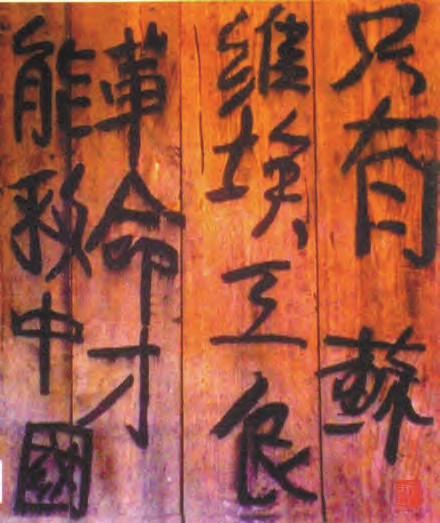 只有蘇
維埃工农
革命才
能救中國